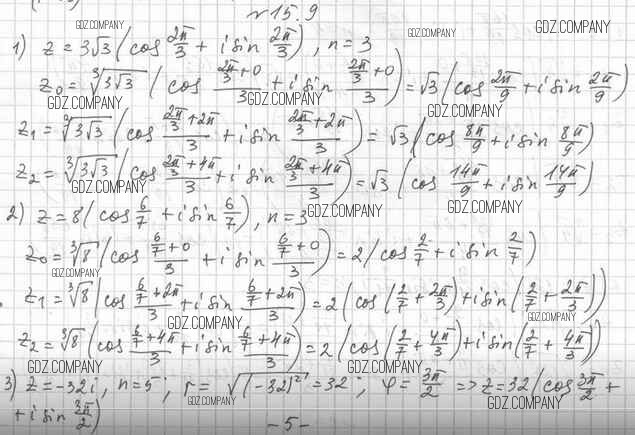 № 15.9
GDZ.COMPANY GDZ.COMPANY GDZ.COMPANY
1) z = 3√3 (cos 2π/3 + i sin 2π/3), n = 3
z₀ = ∛(3√3) (cos (2π/3 + 0)/3 + i sin (2π/3 + 0)/3) = √3 (cos 2π/9 + i sin 2π/9)
GDZ.COMPANY GDZ.COMPANY GDZ.COMPANY
z₁ = ∛(3√3) (cos (2π/3 + 2π)/3 + i sin (2π/3 + 2π)/3) = √3 (cos 8π/9 + i sin 8π/9)
z₂ = ∛(3√3) (cos (2π/3 + 4π)/3 + i sin (2π/3 + 4π)/3) = √3 (cos 14π/9 + i sin 14π/9)
GDZ.COMPANY GDZ.COMPANY GDZ.COMPANY
2) z = 8 (cos 6/7 + i sin 6/7), n = 3
z₀ = ∛8 (cos (6/7 + 0)/3 + i sin (6/7 + 0)/3) = 2 (cos 2/7 + i sin 2/7)
GDZ.COMPANY
z₁ = ∛8 (cos (6/7 + 2π)/3 + i sin (6/7 + 2π)/3) = 2 (cos (2/7 + 2π/3) + i sin (2/7 + 2π/3))
GDZ.COMPANY GDZ.COMPANY
z₂ = ∛8 (cos (6/7 + 4π)/3 + i sin (6/7 + 4π)/3) = 2 (cos (2/7 + 4π/3) + i sin (2/7 + 4π/3))
GDZ.COMPANY GDZ.COMPANY
3) z = -32i, n = 5; r = √((-32)²) = 32; φ = 3π/2 => z = 32 (cos 3π/2 +
GDZ.COMPANY GDZ.COMPANY
+ i sin 3π/2)
- 5 -